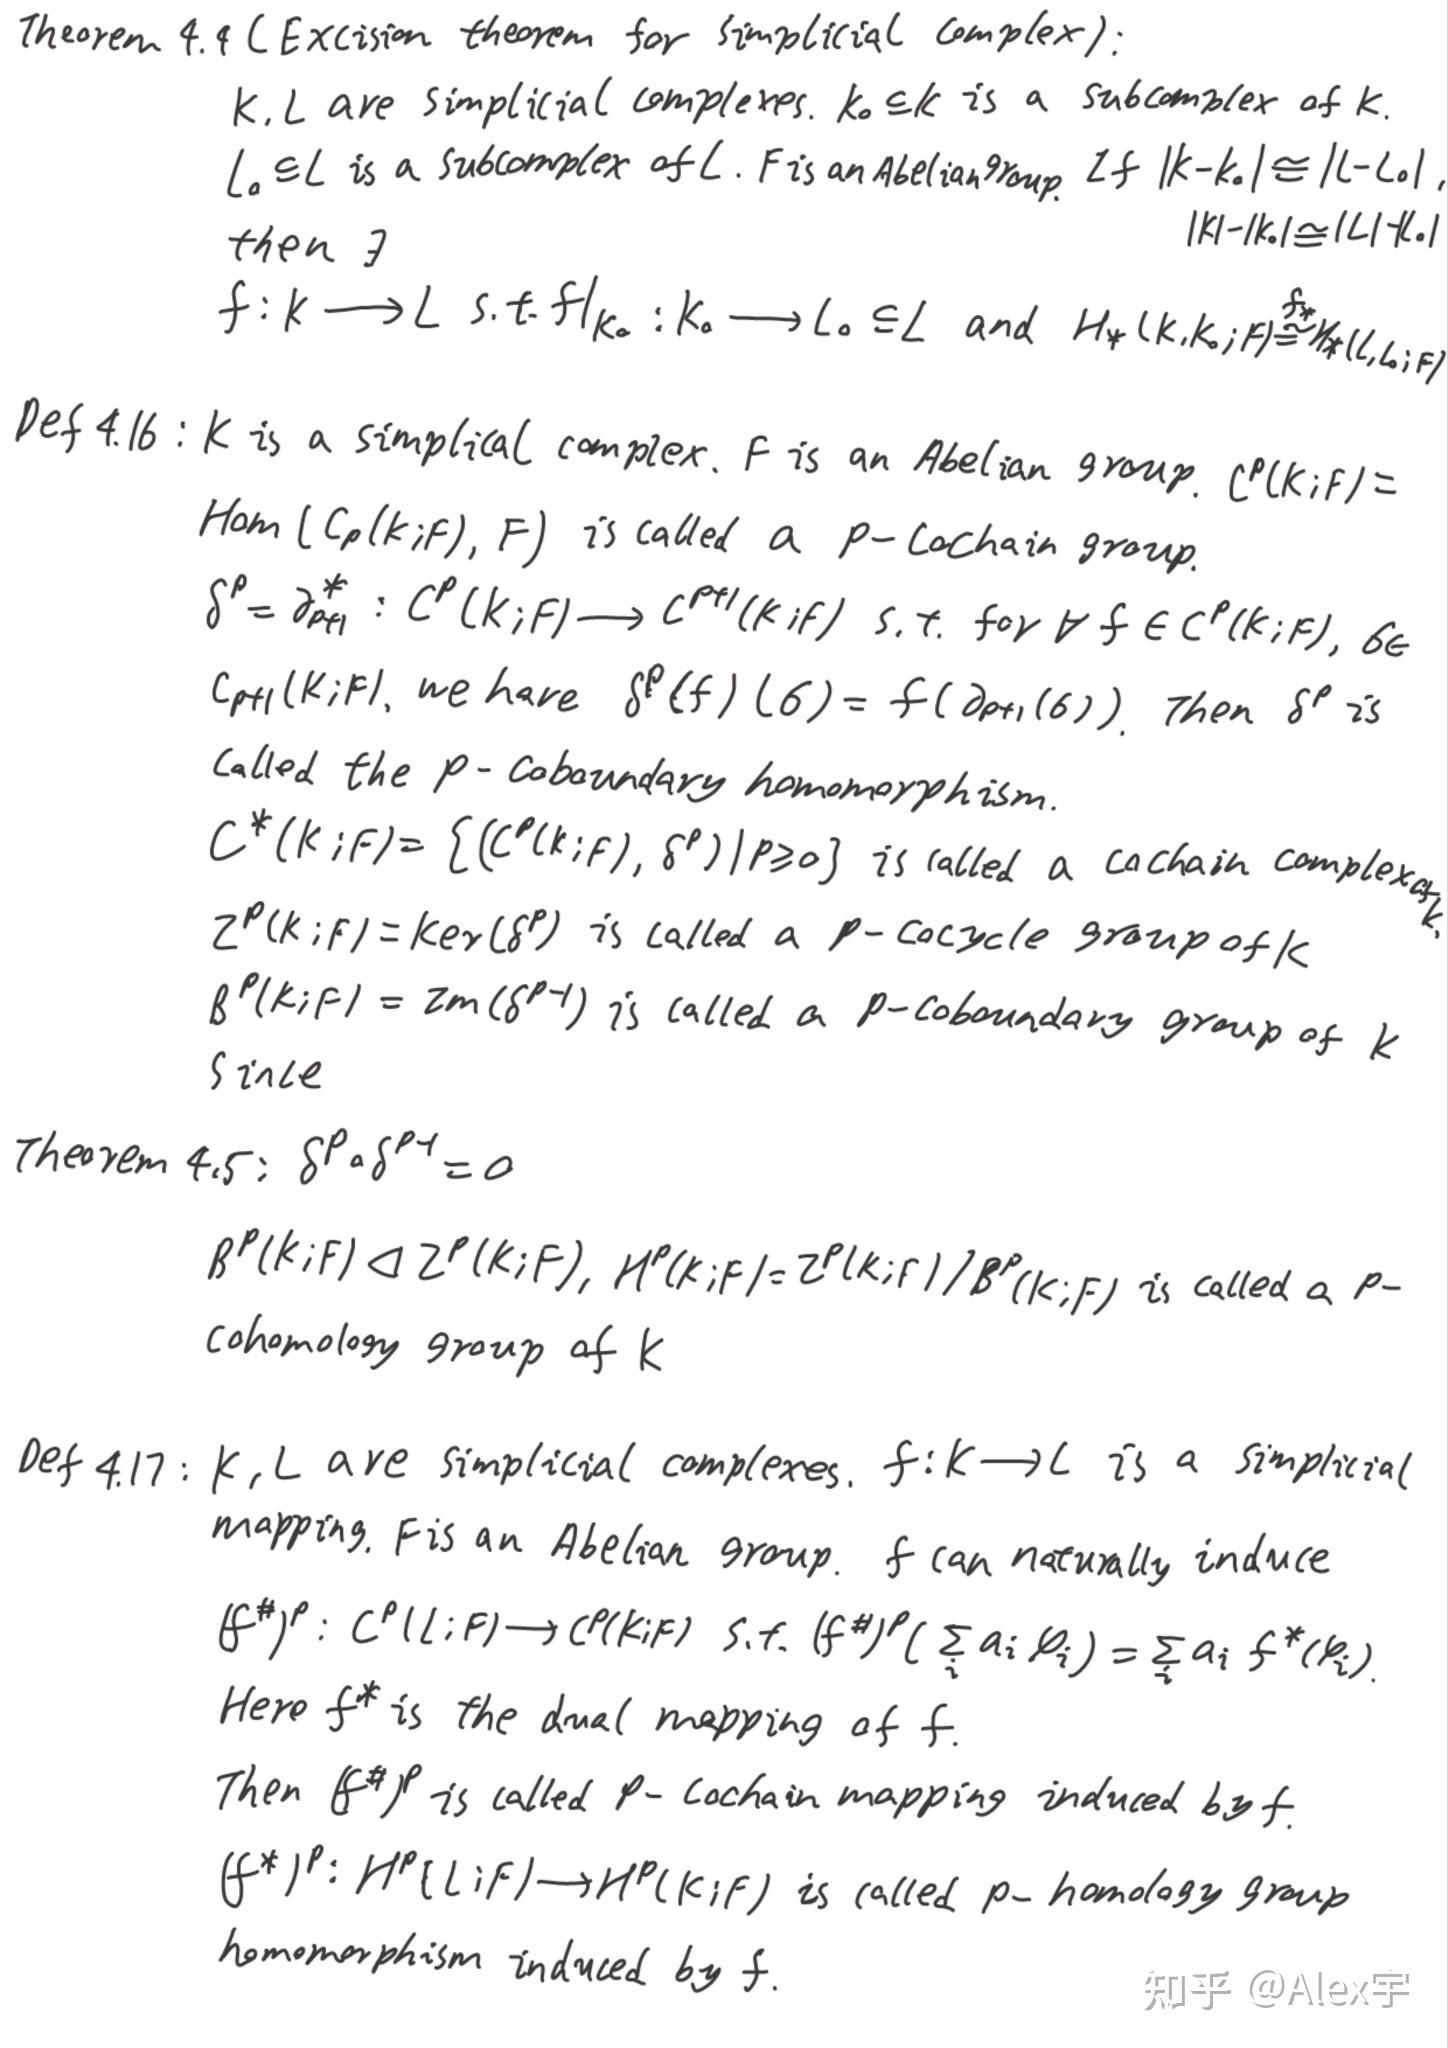 Theorem 4.4 (Excision theorem for simplicial complex):
K, L are simplicial complexes. K₀ ⊆ K is a subcomplex of K.
L₀ ⊆ L is a subcomplex of L. F is an Abelian group. If |K-K₀| ≅ |L-L₀|,
|K|-|K₀| ≅ |L|-|L₀|
then ∃
f: K ⟶ L s.t. f|_K₀ : K₀ ⟶ L₀ ⊆ L and H_*(K, K₀; F) ≅^{f_*} H_*(L, L₀; F)
Def 4.16: K is a simplical complex. F is an Abelian group. C^p(K;F) =
Hom(C_p(K;F), F) is called a p-cochain group.
δ^p = ∂_{p+1}^* : C^p(K;F) ⟶ C^{p+1}(K;F) s.t. for ∀ f ∈ C^p(K;F), σ ∈
C_{p+1}(K;F), we have δ^p(f)(σ) = f(∂_{p+1}(σ)). Then δ^p is
called the p-coboundary homomorphism.
C^*(K;F) = {(C^p(K;F), δ^p) | p ≥ 0} is called a cochain complex of K.
Z^p(K;F) = Ker(δ^p) is called a p-cocycle group of K
B^p(K;F) = Im(δ^{p-1}) is called a p-coboundary group of K
Since
Theorem 4.5: δ^p ∘ δ^{p-1} = 0
B^p(K;F) ◁ Z^p(K;F), H^p(K;F) = Z^p(K;F)/B^p(K;F) is called a p-
cohomology group of K
Def 4.17: K, L are simplicial complexes. f: K ⟶ L is a simplicial
mapping. F is an Abelian group. f can naturally induce
(f^#)^p : C^p(L;F) ⟶ C^p(K;F) s.t. (f^#)^p(∑_i a_i φ_i) = ∑_i a_i f^*(φ_i).
Here f^* is the dual mapping of f.
Then (f^#)^p is called p-cochain mapping induced by f.
(f^*)^p : H^p(L;F) ⟶ H^p(K;F) is called p-homology group
homomorphism induced by f.
知乎 @Alex宇